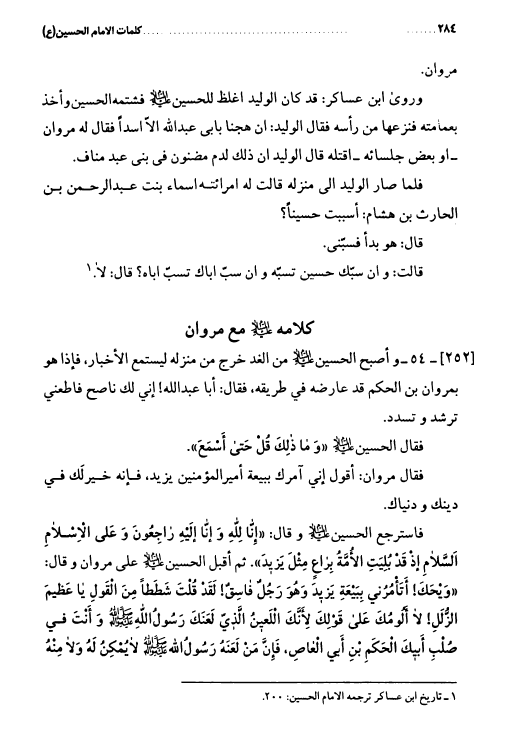 ٢٨٤ ....... ................................................ كلمات الامام الحسين(ع)
مروان.
وروىٰ ابن عساكر: قد كان الوليد اغلظ للحسين عليه السلام فشتمه الحسين وأخذ
بعمامته فنزعها من رأسه فقال الوليد: ان هجنا بابى عبدالله الاّ اسداً فقال له مروان
ـ او بعض جلسائه ـ اقتله قال الوليد ان ذلك لدم مضنون فى بنى عبد مناف.
فلما صار الوليد الى منزله قالت له امرائته اسماء بنت عبدالرحمن بن
الحارث بن هشام: أسببت حسيناً؟
قال: هو بدأ فسبّنى.
قالت: و ان سبّك حسين تسبّه و ان سبّ اباك تسبّ اباه؟ قال: لاٰ.١
كلامه عليه السلام مع مروان
[٢٥٢] ـ ٥٤ ـ و أصبح الحسين عليه السلام من الغد خرج من منزله ليستمع الأخبار، فإذا هو
بمروان بن الحكم قد عارضه في طريقه، فقال: أبا عبدالله! إني لك ناصح فاطعني
ترشد و تسدد.
فقال الحسين عليه السلام «وَ مٰا ذٰلِكَ قُلْ حَتىٰ أَسْمَعَ».
فقال مروان: أقول إني آمرك ببيعة أميرالمؤمنين يزيد، فإنه خيرلَك في
دينك و دنياك.
فاسترجع الحسين عليه السلام و قال: «إِنَّا لِلّٰهِ وَ إِنَّا إِلَيْهِ رٰاجِعُونَ وَ عَلَى الْإِسْلاٰمِ
اَلسَّلاٰمِ إِذْ قَدْ بُلِيَتِ الْأُمَّةُ بِرٰاعٍ مِثْلَ يَزِيدَ». ثم أقبل الحسين عليه السلام على مروان و قال:
«وَيْحَكَ! أَتَأْمُرُني بِبَيْعَةِ يَزِيدَ وَهُوَ رَجُلٌ فٰاسِقٌ! لَقَدْ قُلْتَ شَطَطاً مِنَ الْقَولِ يٰا عَظِيمَ
الزُّلَلِ! لاٰ أَلُومُكَ عَلىٰ قَوْلِكَ لِأَنَّكَ اللَّعينُ الَّذِيّ لَعَنَكَ رَسُولُ اللهِ صلى الله عليه وآله وَ أَنْتَ في
صُلْبِ أَبيكَ الْحَكَمِ بْنِ أَبِي الْعٰاصِ، فَإِنَّ مَنْ لَعَنَهُ رَسُولُ الله صلى الله عليه وآله لاٰ يُمْكِنُ لَهُ وَلاٰ مِنْهُ
١ ـ تاريخ ابن عساكر ترجمه الامام الحسين: ٢٠٠.